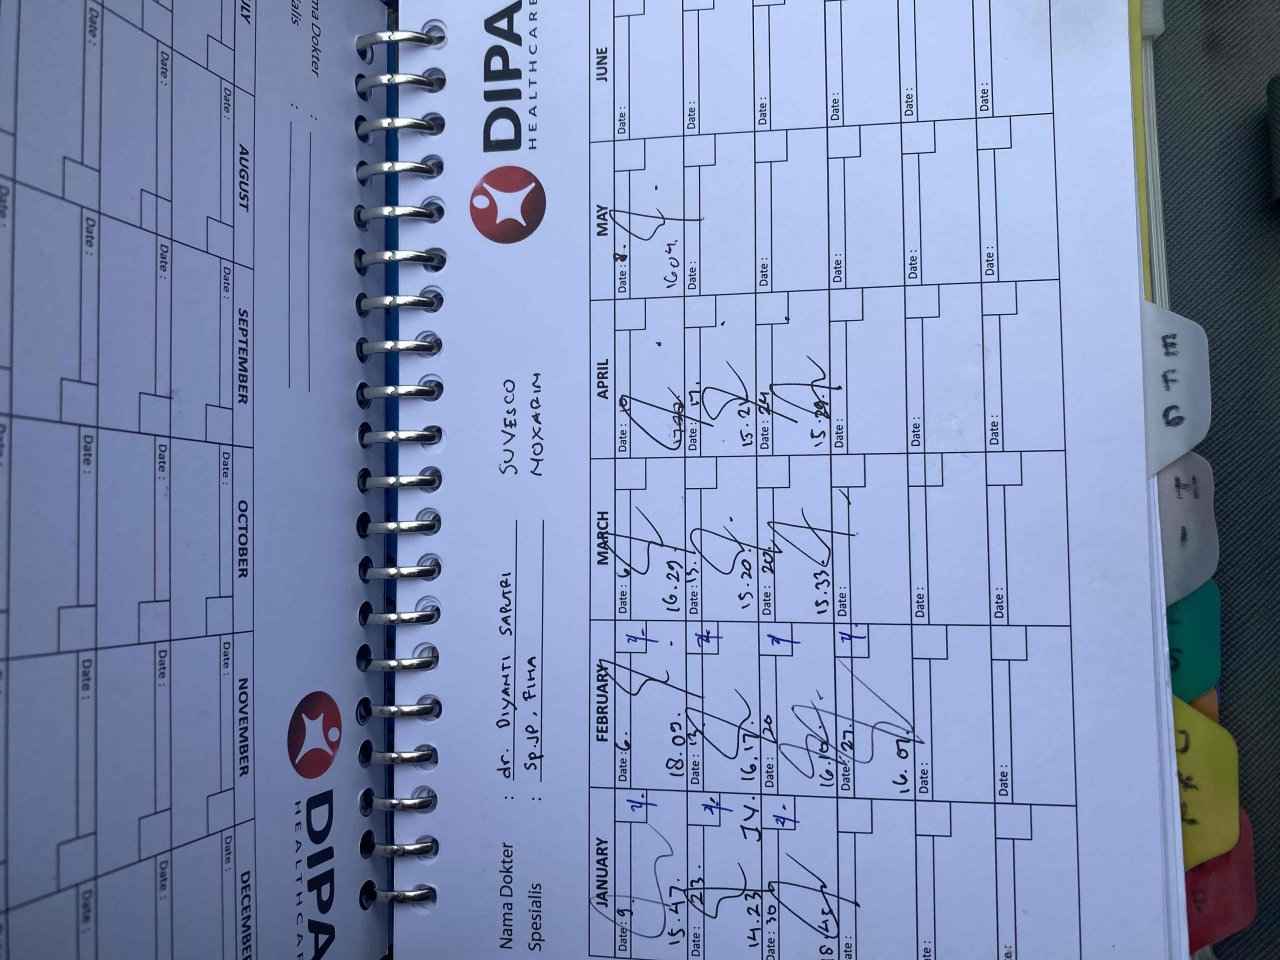 DIPA
HEALTHCARE
Nama Dokter : dr. DIYANTI SAPUTRI SUVESCO
Spesialis : Sp.JP, FIHA NOXARIN
JANUARY FEBRUARY MARCH APRIL MAY JUNE
Date: 9. Date: 6. Date: 6 Date: 10 Date: 8. Date:
15.47. 18.09. 16.29. 1604.
Date: 23. Date: 13 Date: 13. Date: 17. Date: Date:
14.23 JY. 16.17. 15.20. 15.21
Date: 30 Date: 20 Date: 20 Date: 24 Date: Date:
18.45 15.33 15.29
ate: Date: 27. Date: Date: Date: Date:
16.07.
te: Date: Date: Date: Date: Date:
e: Date: Date: Date: Date: Date:
ma Dokter :
ialis :
ULY AUGUST SEPTEMBER OCTOBER NOVEMBER DECEMBER
Date: Date: Date: Date: Date:
Date: Date: Date: Date: Date:
Date: Date: Date: Date: Date:
DIPA
HEALTHCAR